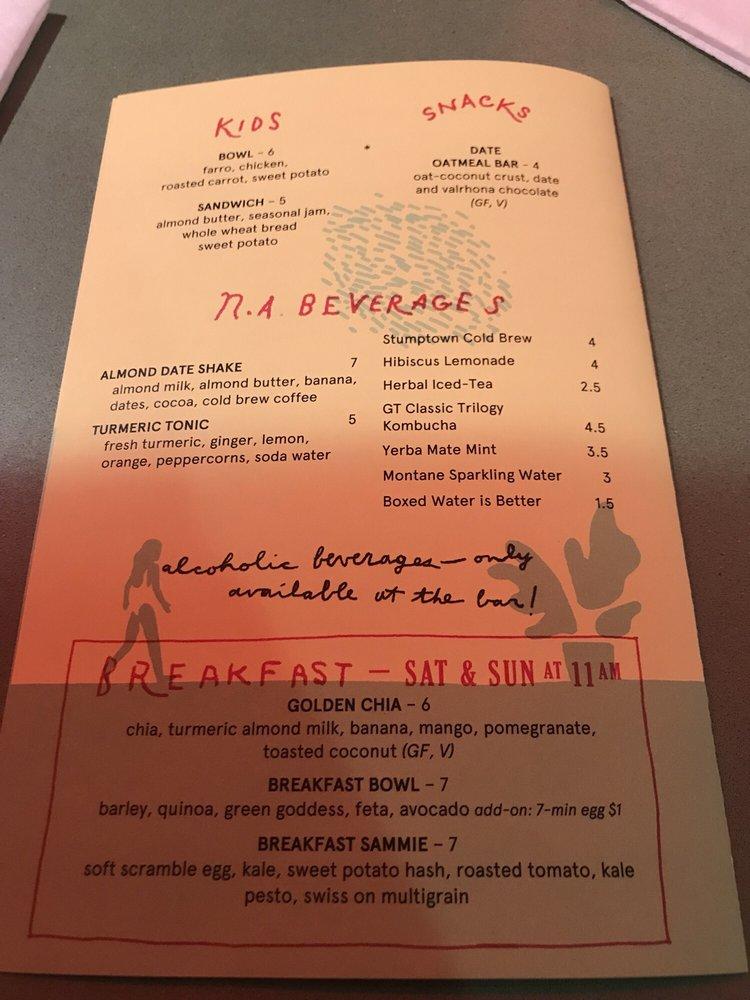 KIDS
BOWL - 6
farro, chicken,
roasted carrot, sweet potato
SANDWICH - 5
almond butter, seasonal jam,
whole wheat bread
sweet potato
SNACKS
DATE
OATMEAL BAR - 4
oat-coconut crust, date
and valrhona chocolate
(GF, V)
N.A. BEVERAGES
ALMOND DATE SHAKE 7
almond milk, almond butter, banana,
dates, cocoa, cold brew coffee
TURMERIC TONIC 5
fresh turmeric, ginger, lemon,
orange, peppercorns, soda water
Stumptown Cold Brew 4
Hibiscus Lemonade 4
Herbal Iced-Tea 2.5
GT Classic Trilogy
Kombucha 4.5
Yerba Mate Mint 3.5
Montane Sparkling Water 3
Boxed Water is Better 1.5
alcoholic beverages — only
available at the bar!
BREAKFAST — SAT & SUN AT 11AM
GOLDEN CHIA - 6
chia, turmeric almond milk, banana, mango, pomegranate,
toasted coconut (GF, V)
BREAKFAST BOWL - 7
barley, quinoa, green goddess, feta, avocado add-on: 7-min egg $1
BREAKFAST SAMMIE - 7
soft scramble egg, kale, sweet potato hash, roasted tomato, kale
pesto, swiss on multigrain